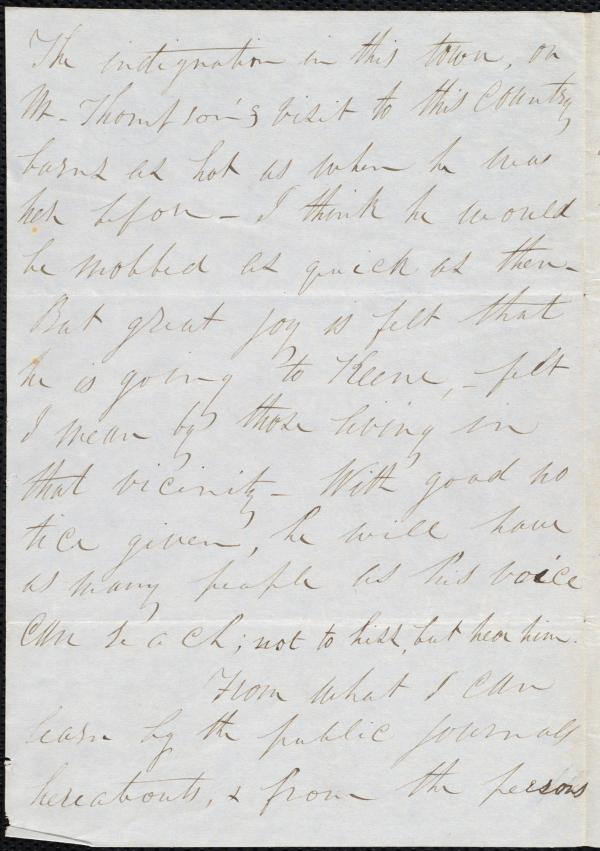 The indignation in this town, on
Mr. Thompson's visit to this country
burns as hot as when he was
here before - I think he would
be mobbed as quick as then -
But great joy is felt that
he is going to Keene, - felt
I mean by those living in
that vicinity - With good no
tice given, he will have
as many people as his voice
can reach; not to hiss, but hear him.
From what I can
learn by the public journals
hereabouts, & from the persons